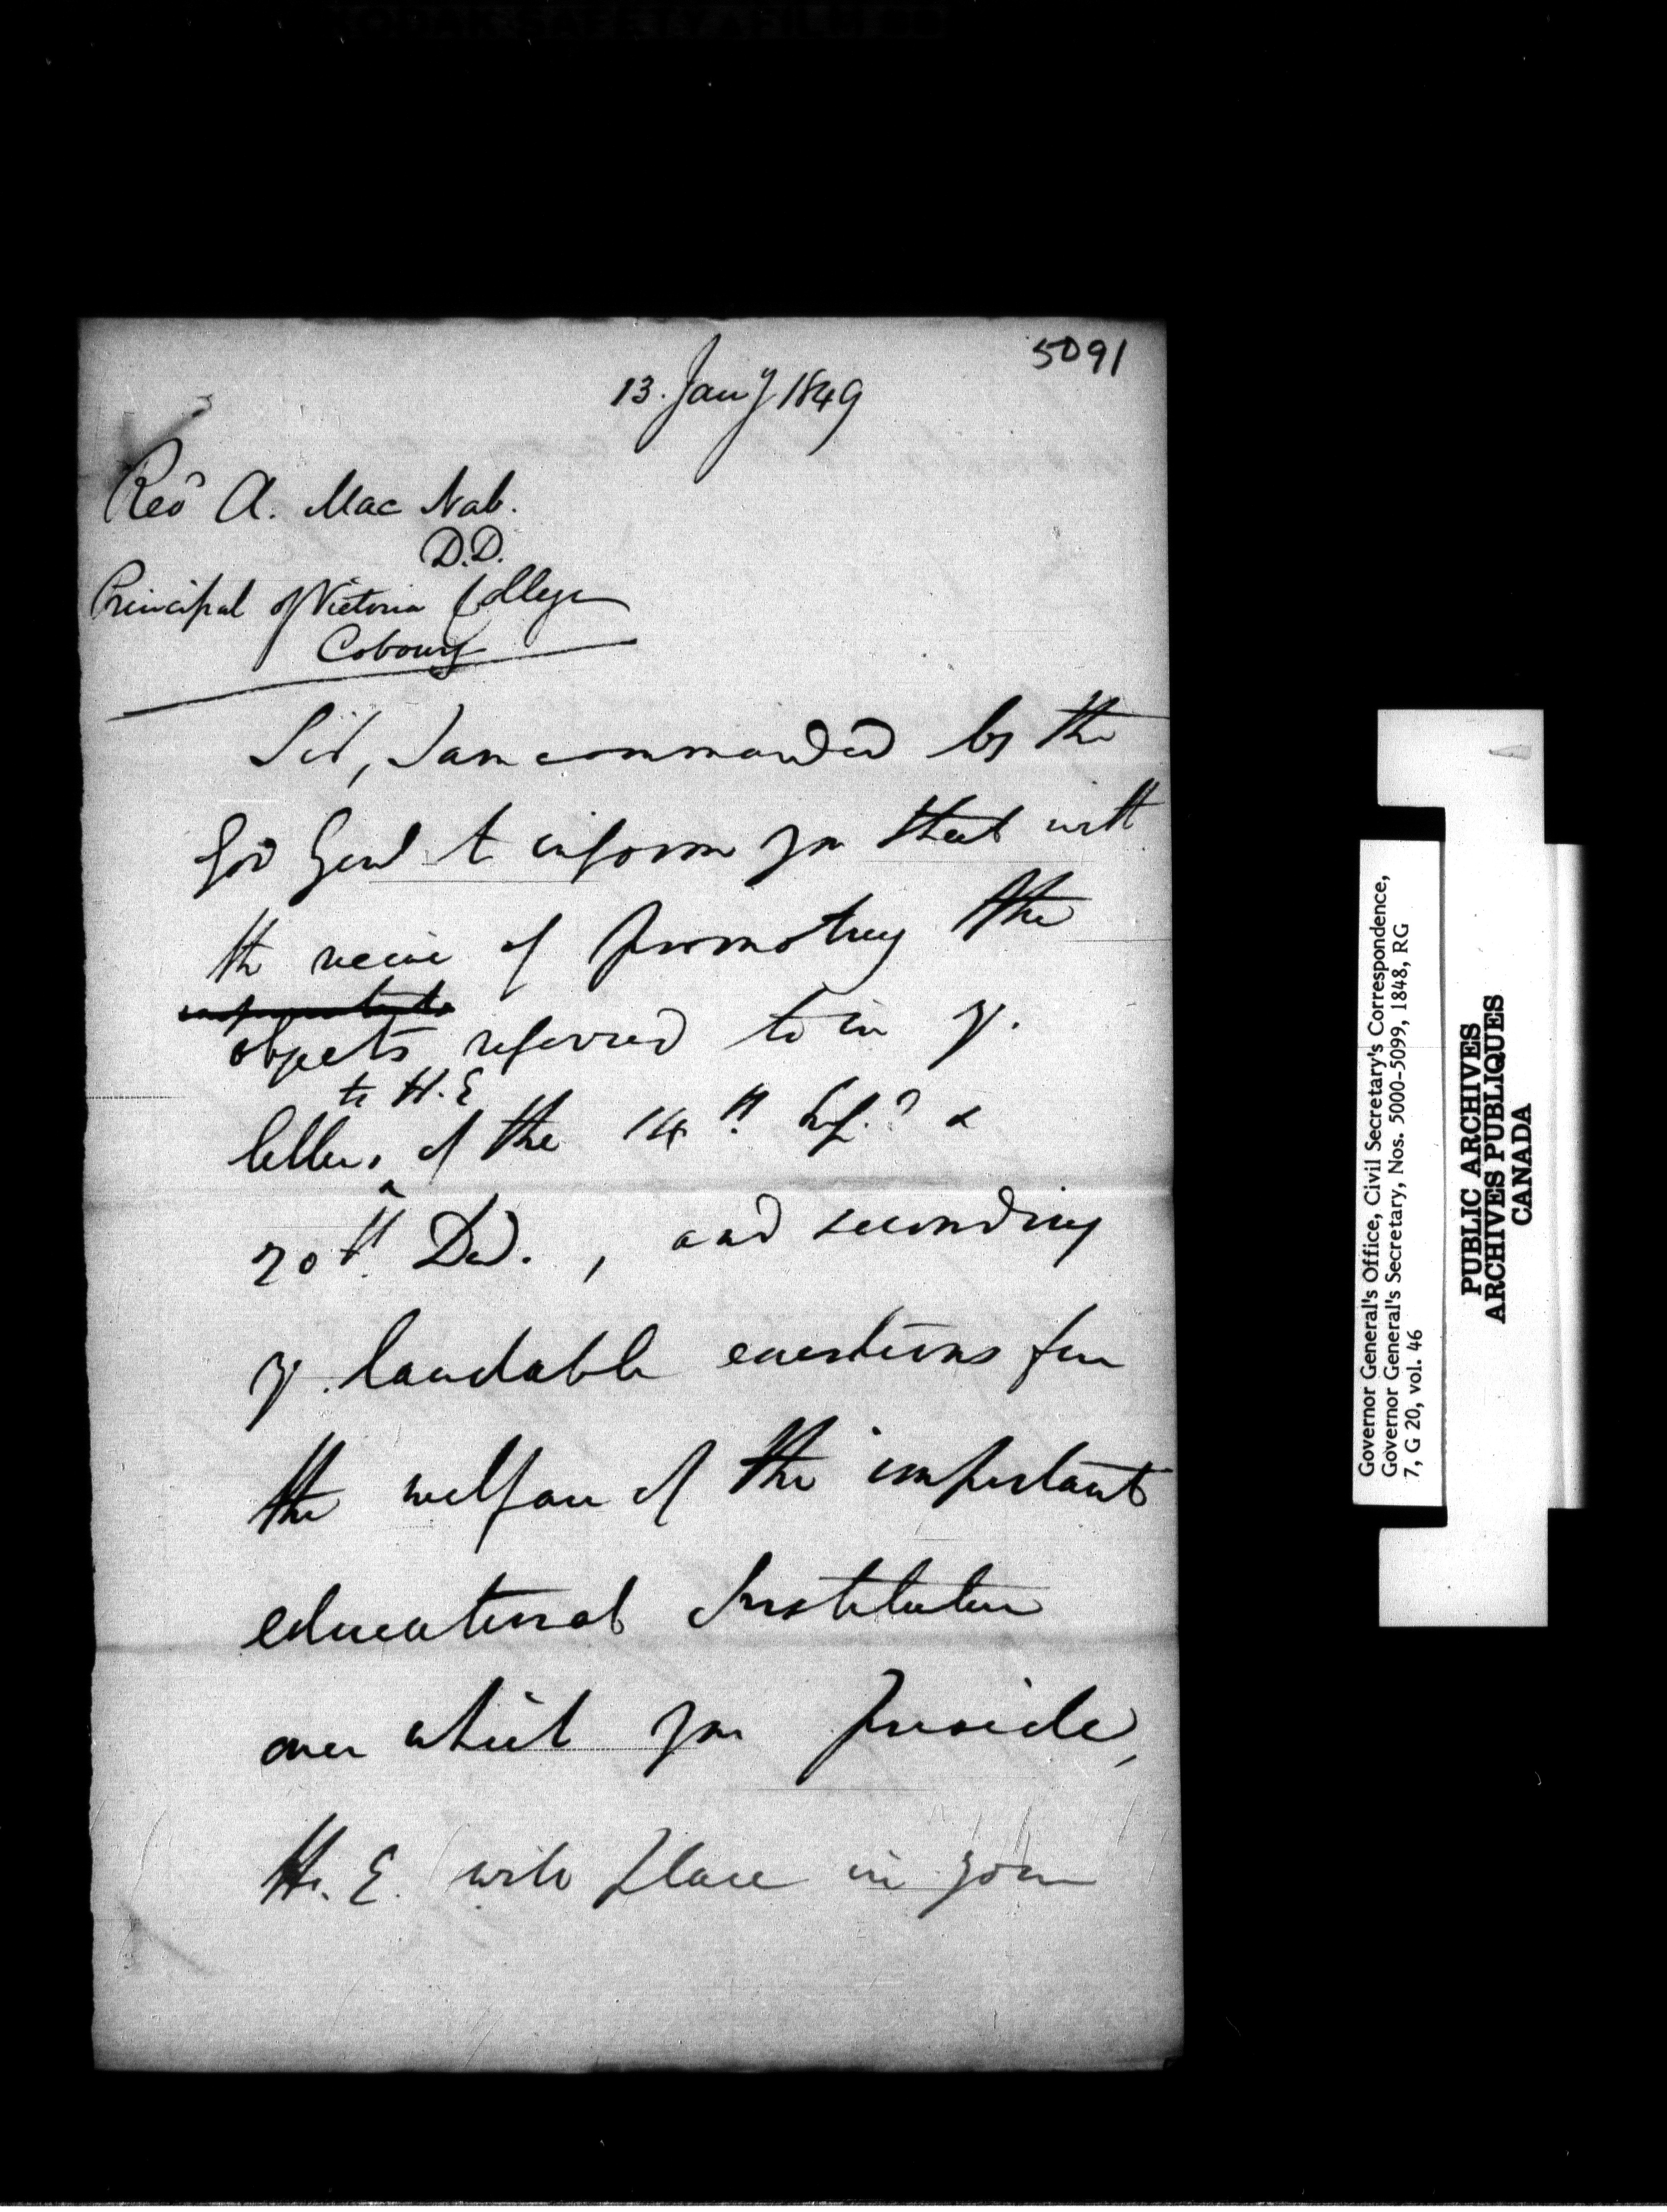 5091
13. Jany 1849
Revd A. Mac Nab.
D.D.
Principal of Victoria College
Cobourg
Sir, I am commanded by the
Gov Genl to inform you that with
the view of promoting the
objects referred to in yr.
to H.E
letters of the 14th &
20th Dec. , and seconding
yr. laudable exertions for
the welfare of the important
educational Institution
over which you preside,
H. E. will place in your
Governor General's Office, Civil Secretary's Correspondence,
Governor General's Secretary, Nos. 5000-5099, 1848, RG
7, G 20, vol. 46
PUBLIC ARCHIVES
ARCHIVES PUBLIQUES
CANADA